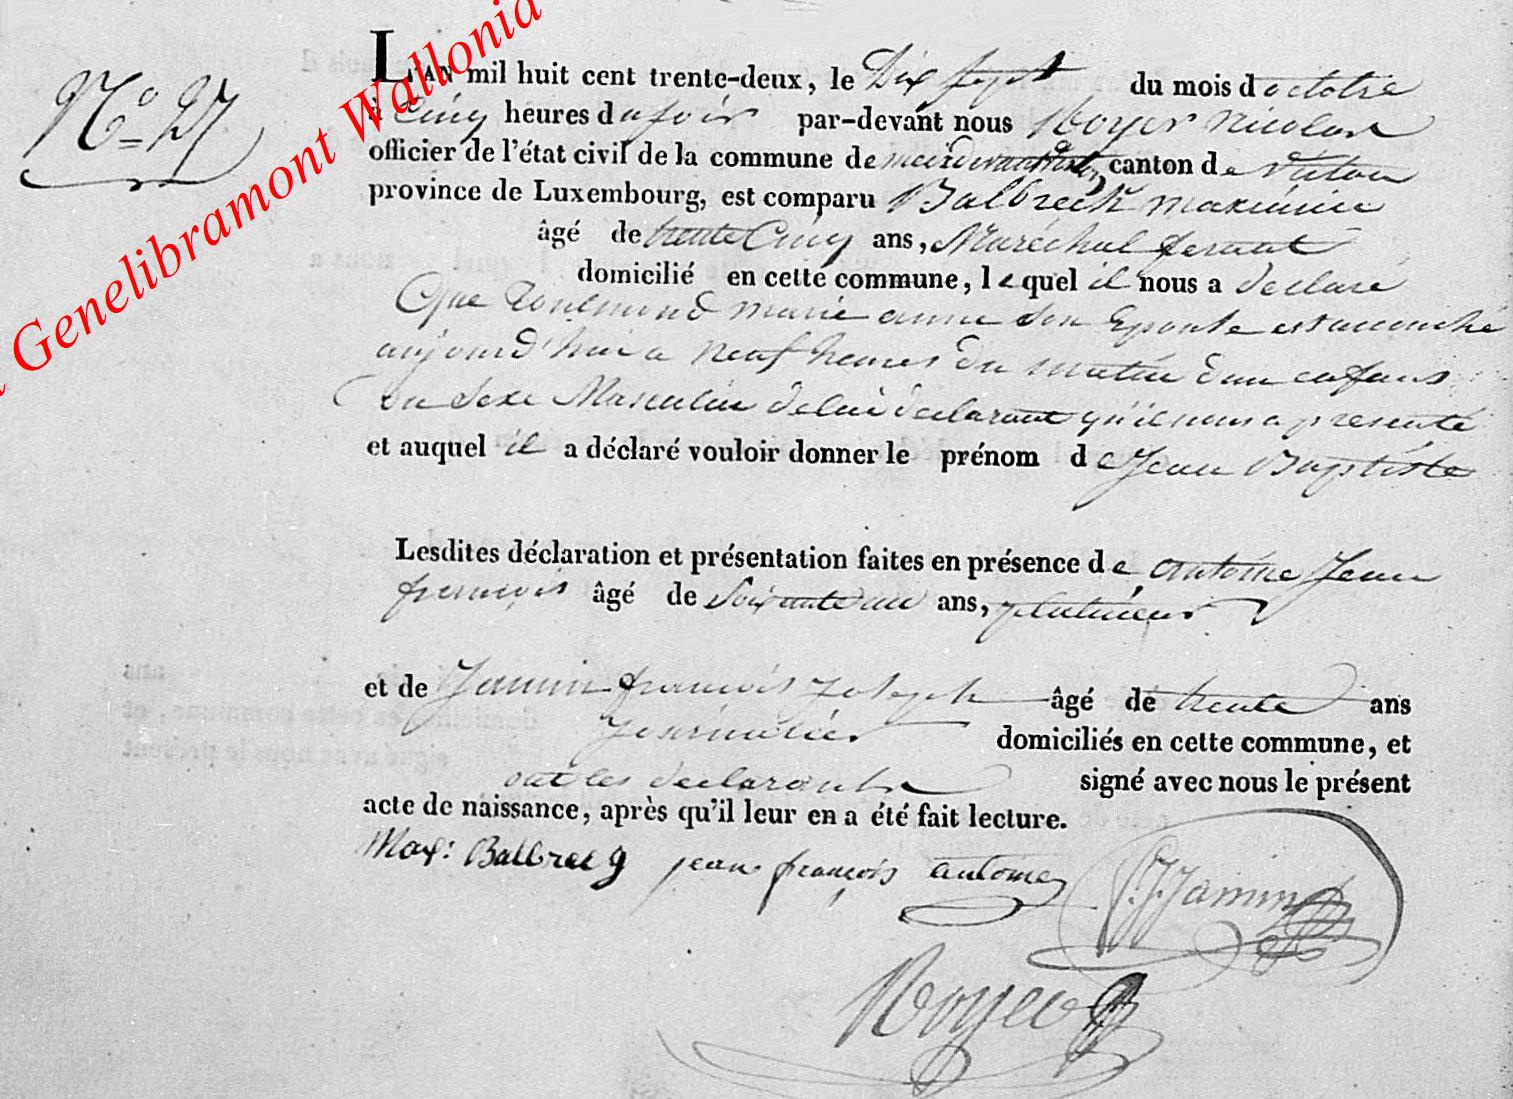 Genelibramont Wallonia
N.° 27
L'AN mil huit cent trente-deux, le Dix sept du mois d'octobre
à Cinq heures du soir par-devant nous Royer nicolas
officier de l'état civil de la commune de canton de virton
province de Luxembourg, est comparu Balbreck maximin
âgé de trente Cinq ans, Maréchal ferant
domicilié en cette commune, lequel il nous a déclaré
Que marie anne son Epouse est accouché
aujourd'hui a neuf heures du matin d'un enfans
du sexe Masculin de lui declarant qu'il nous a presenté
et auquel il a déclaré vouloir donner le prénom de Jean Baptiste
Lesdites déclaration et présentation faites en présence de antoine Jean
françois âgé de Soixante un ans,
et de Jamin françois Joseph âgé de trente ans
Journalier domiciliés en cette commune, et
ont les declarants signé avec nous le présent
acte de naissance, après qu'il leur en a été fait lecture.
Max: Balbreck jean françois antoine f.J.Jamin
Royer